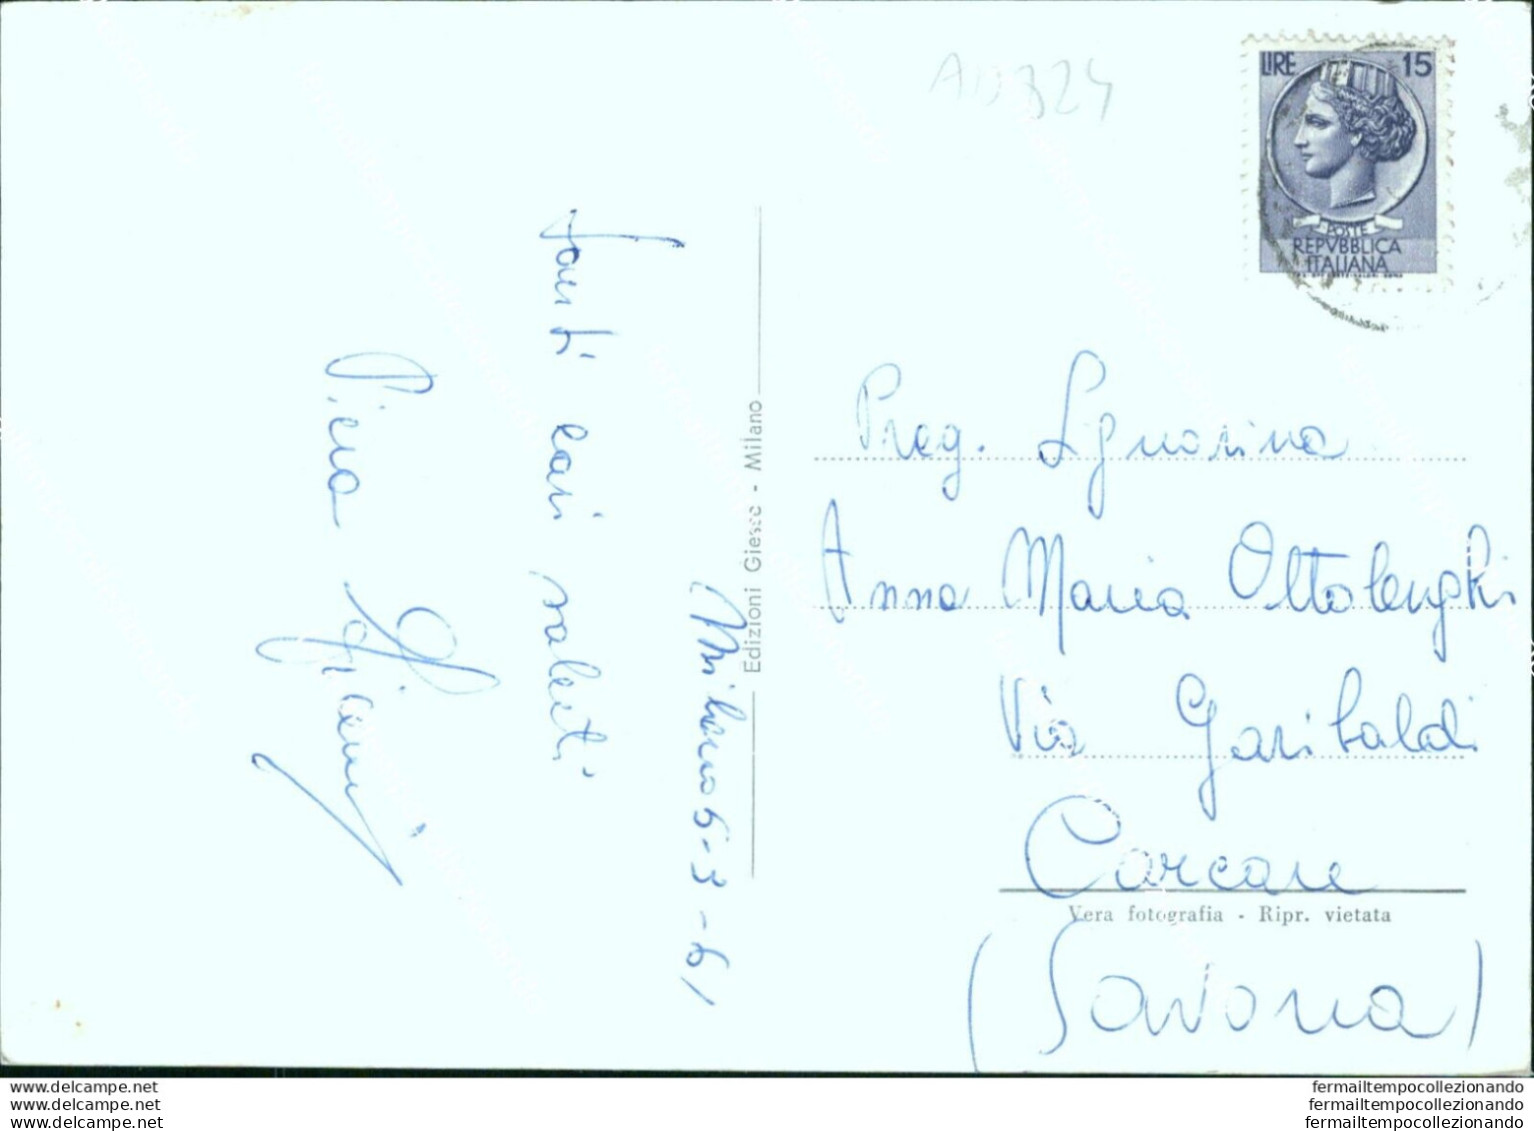 AD324
LIRE 15
POSTE
REPVBBLICA
ITALIANA
Milano 5-3-61
Tanti cari saluti
Piera
Edizioni Giesse - Milano
Preg. Signorina
Anna Maria Ottolenghi
Via Garibaldi
Carcare
Vera fotografia - Ripr. vietata
(Savona)
www.delcampe.net
www.delcampe.net
www.delcampe.net
fermailtempocollezionando
fermailtempocollezionando
fermailtempocollezionando